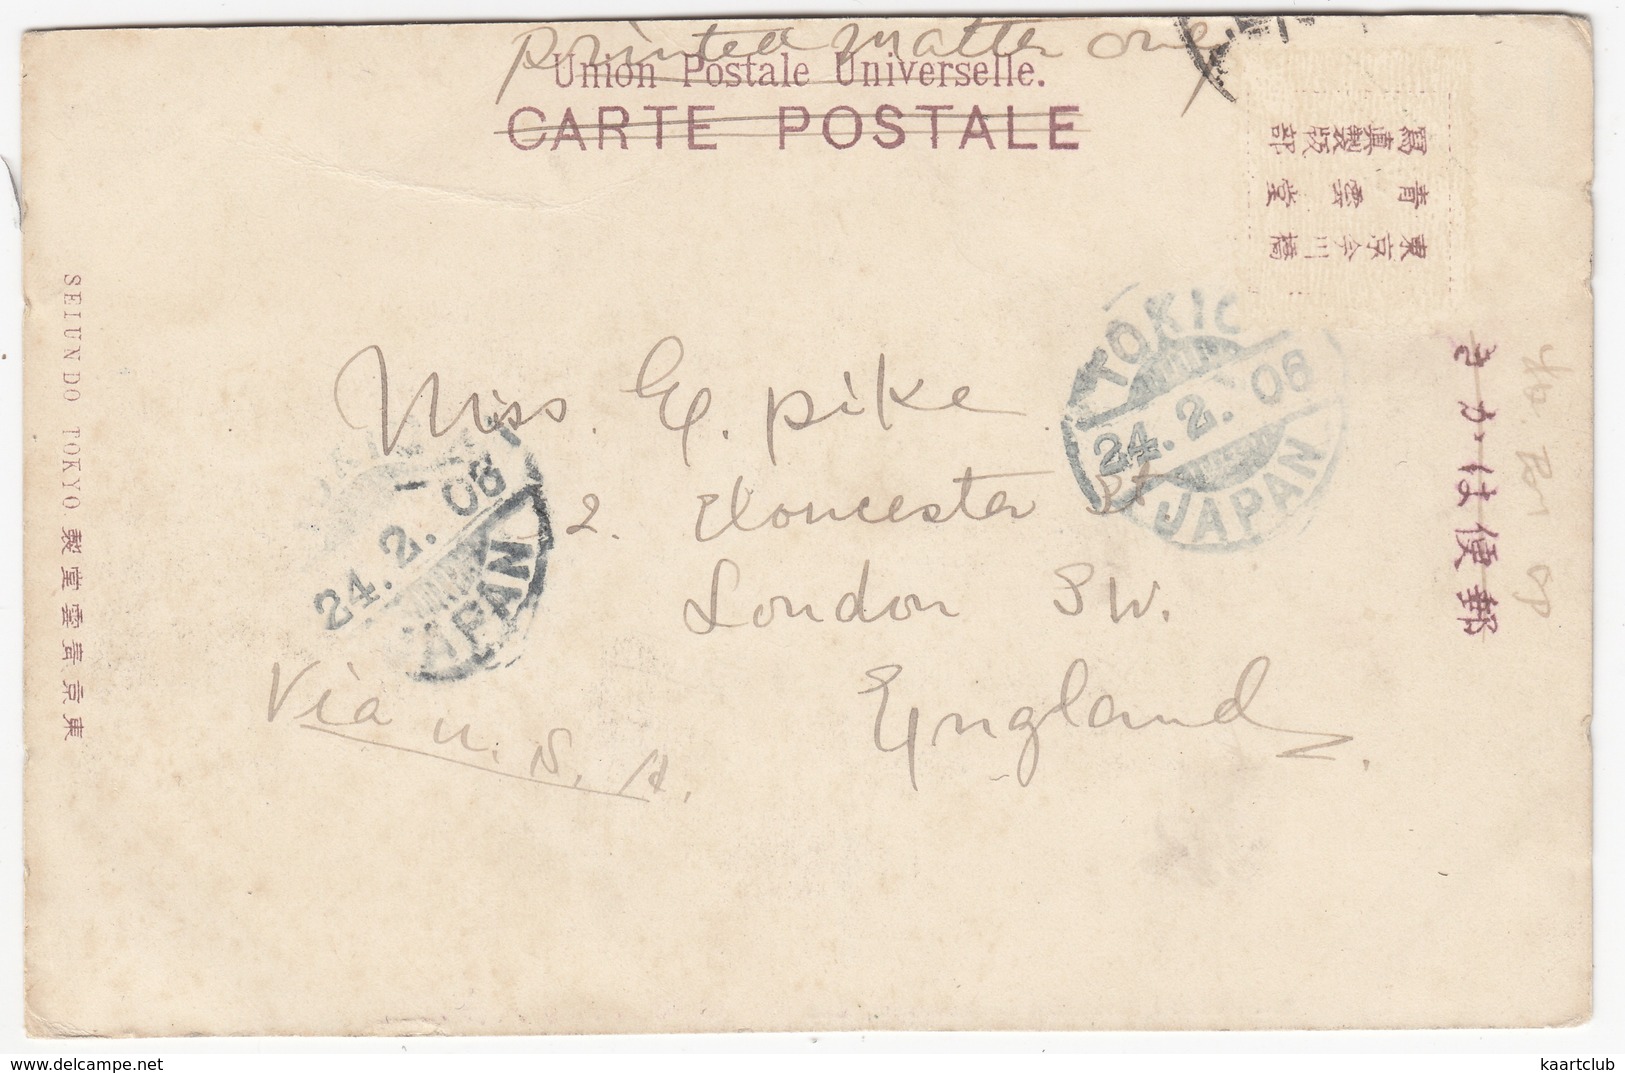 Printed matter only
Union Postale Universelle.
CARTE POSTALE
東京今川橋
青雲堂
寫眞製版部
きかは便郵
SEIUNDO TOKYO 製堂雲青京東
TOKIO
24.2.06
JAPAN
24.2.06
JAPAN
Miss. E. Pike
2. Gloucester St.
London SW.
England
Via U.S.A.
www.delcampe.net
kaartclub